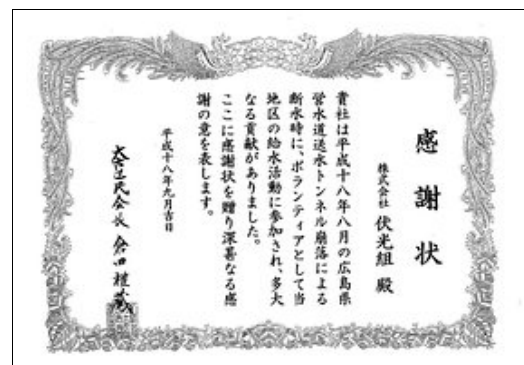 感謝状
株式会社 伏光組 殿
貴社は平成十八年八月の広島県
営水道送水トンネル崩落による
断水時に、ボランティアとして当
地区の給水活動に参加され、多大
なる貢献がありました。
ここに感謝状を贈り深甚なる感
謝の意を表します。
平成十八年九月吉日